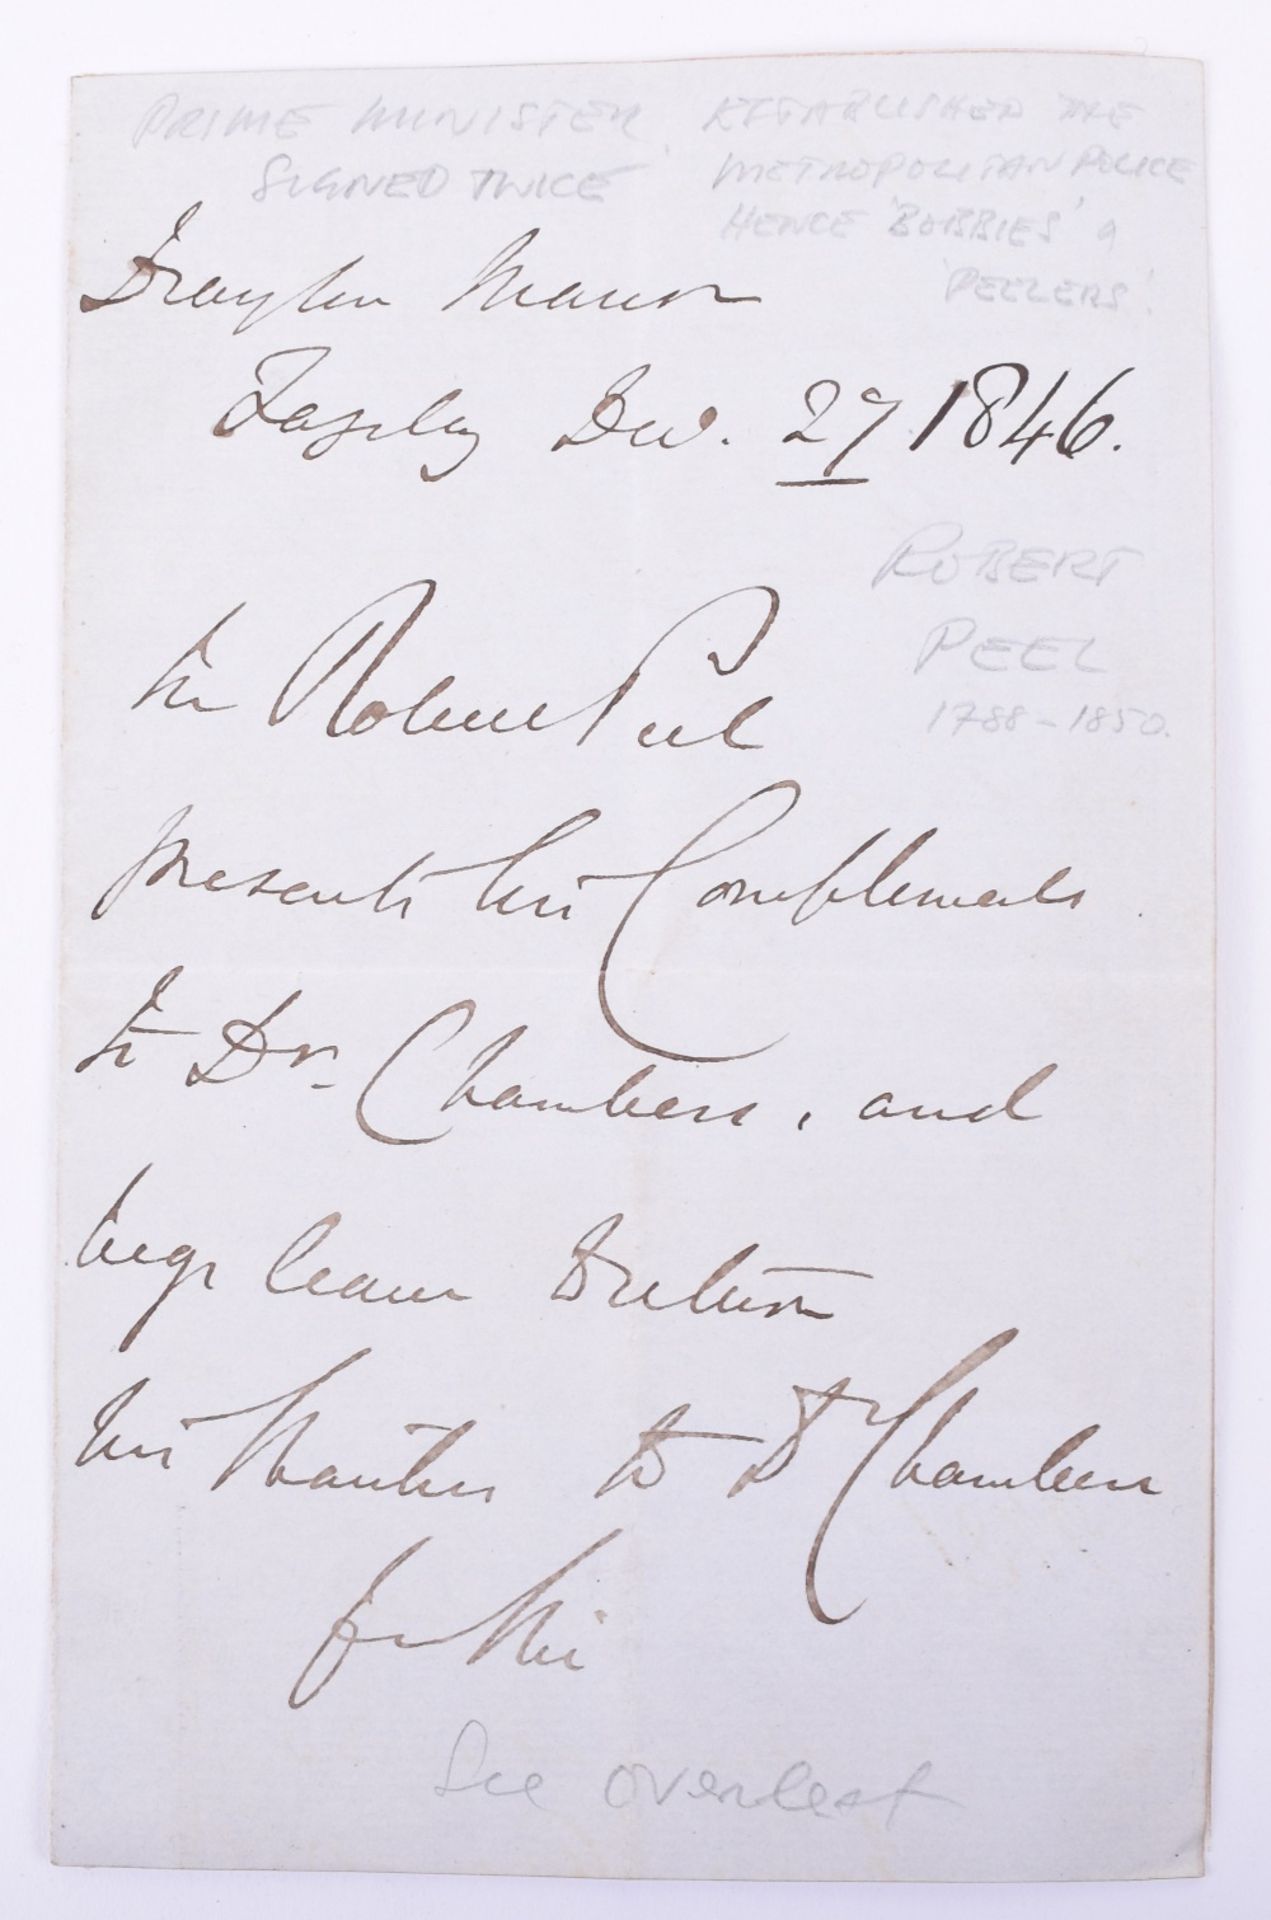 PRIME MINISTER
SIGNED TWICE
ESTABLISHED THE
METROPOLITAN POLICE
HENCE 'BOBBIES' &
'PEELERS'.
Drayton Manor
Fazeley Dec. 27 1846.
ROBERT
PEEL
1788-1850.
Sir Robert Peel
presents his Compliments
to Dr. Chambers, and
begs leave to return
his thanks to Dr Chambers
for his
See overleaf